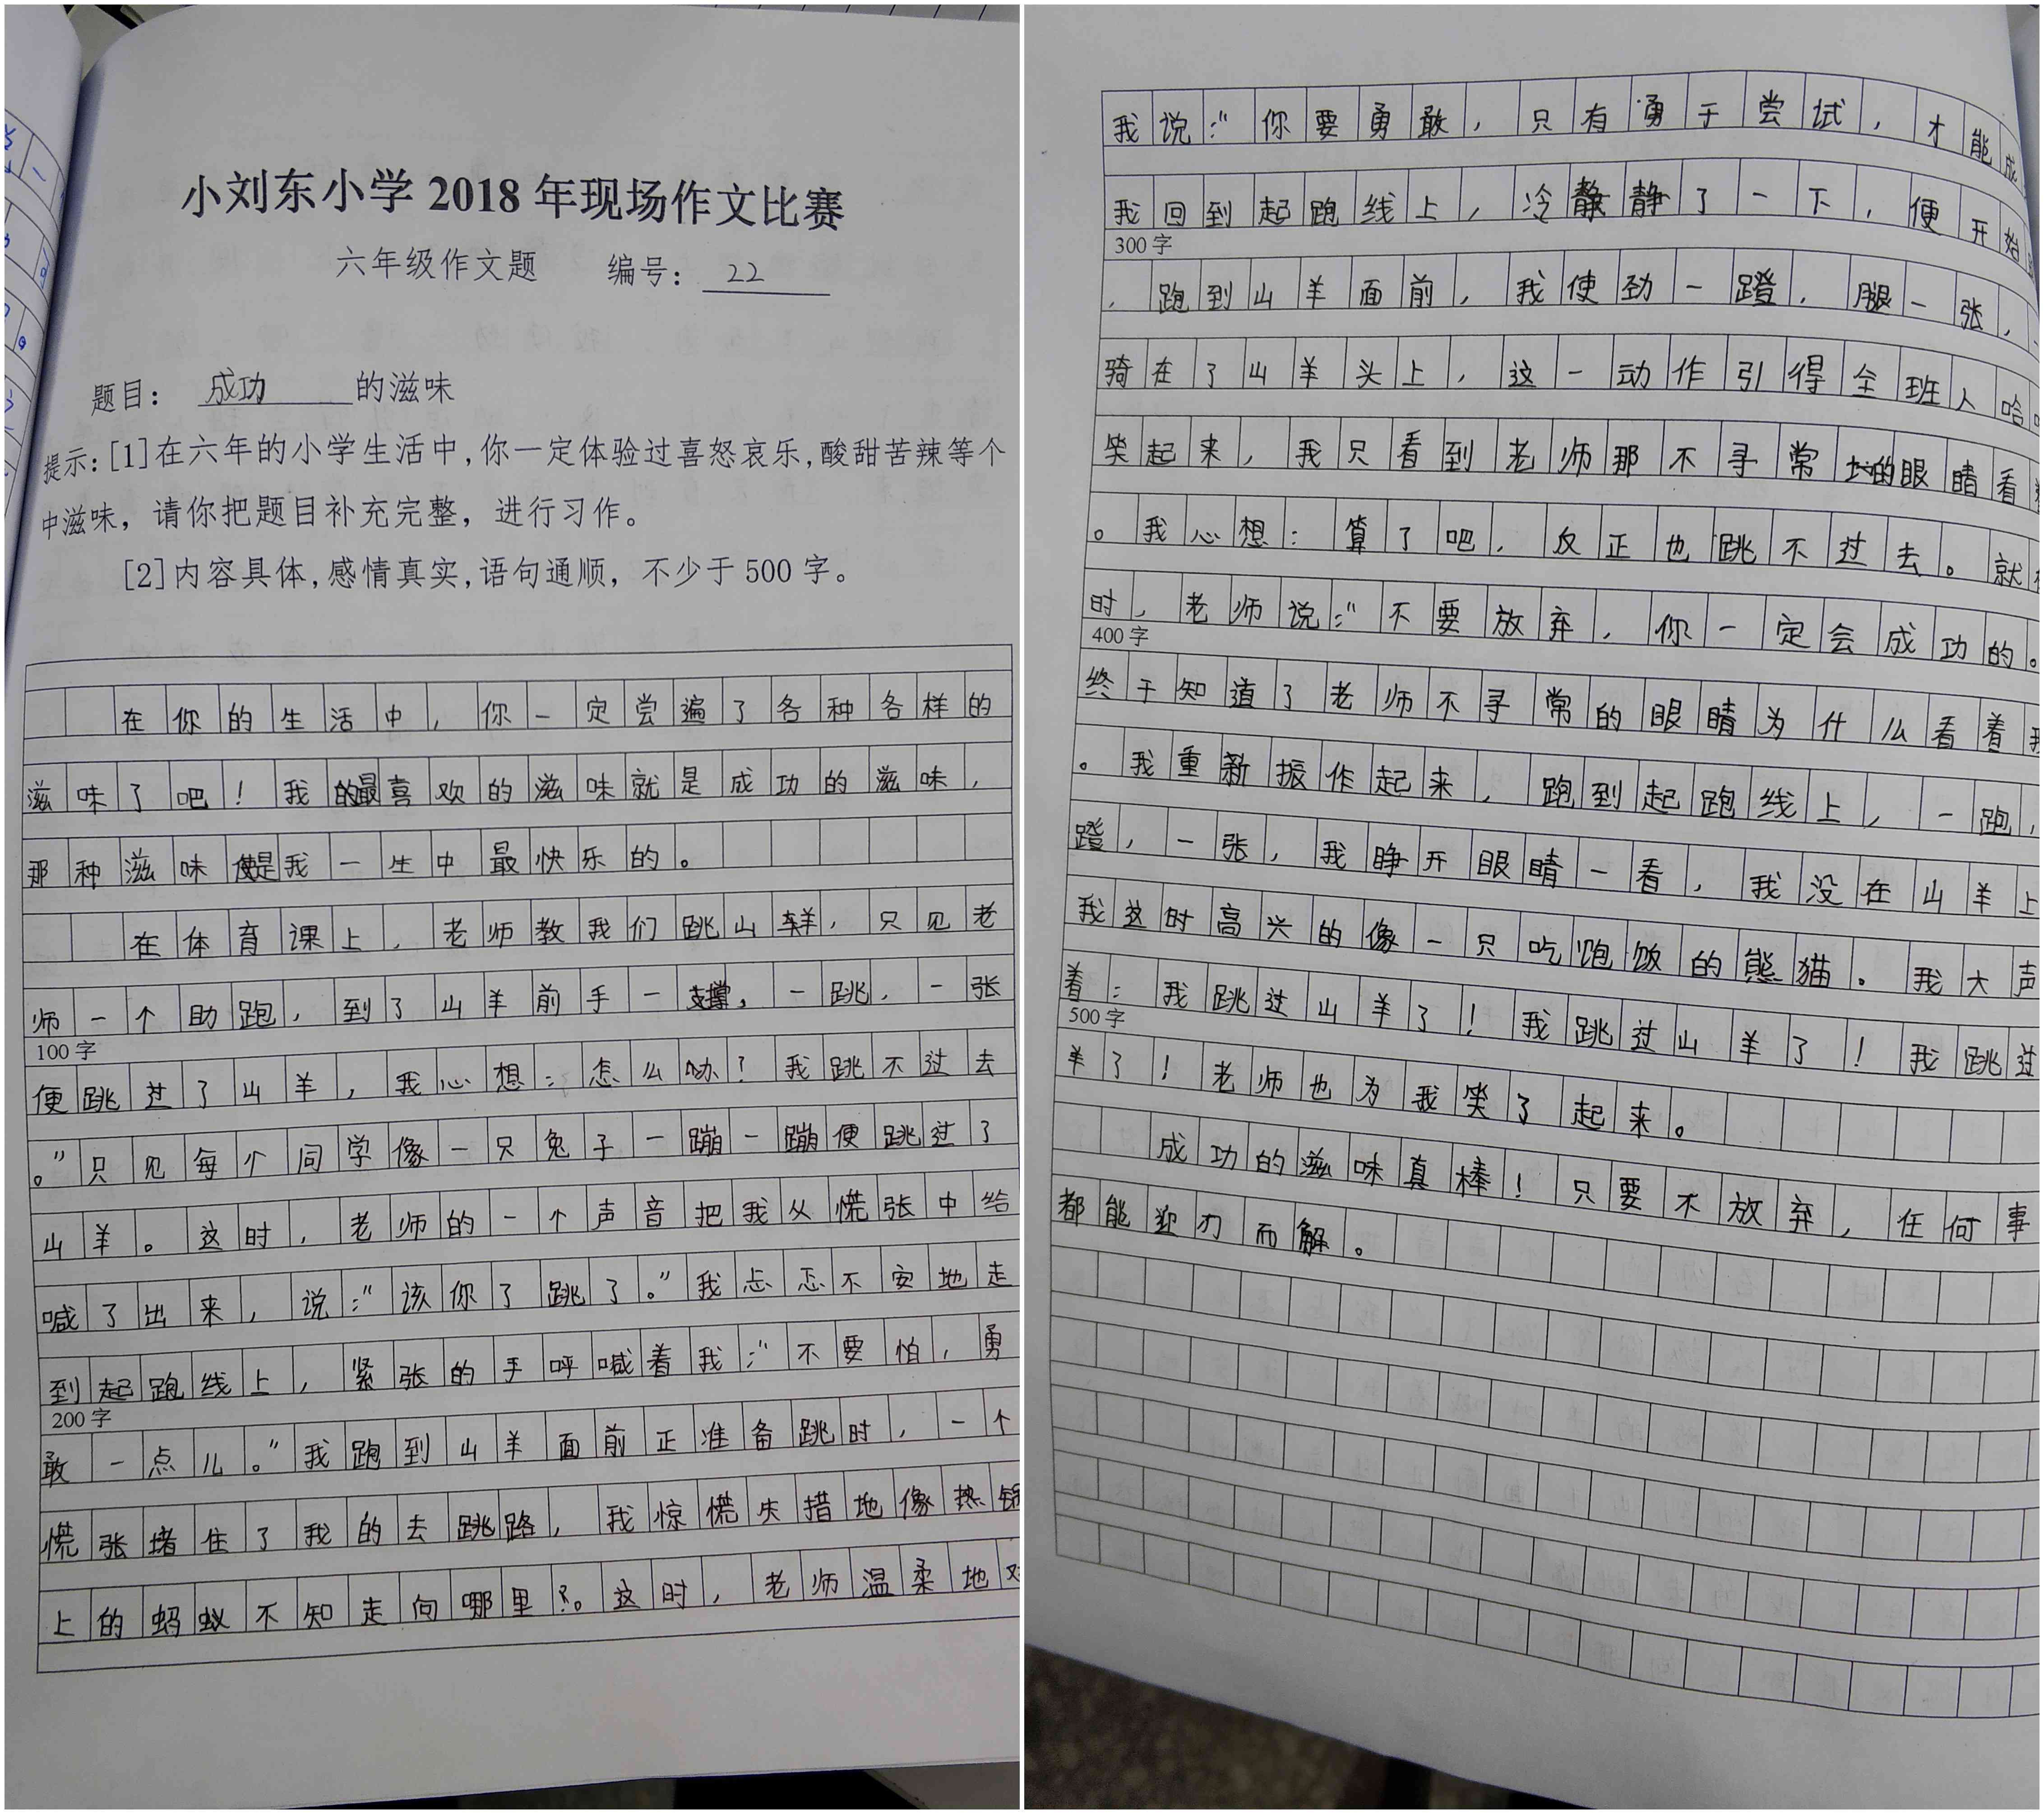 小刘东小学 2018 年现场作文比赛
六年级作文题 编号： 22
题目： 成功 的滋味
提示：[1]在六年的小学生活中，你一定体验过喜怒哀乐，酸甜苦辣等个
中滋味，请你把题目补充完整，进行习作。
[2]内容具体，感情真实，语句通顺，不少于 500 字。
在你的生活中，你一定尝遍了各种各样的
滋味了吧！我最喜欢的滋味就是成功的滋味，
那种滋味是我一生中最快乐的。
在体育课上，老师教我们跳山羊，只见老
师一个助跑，到了山羊前手一撑，一跳，一张
100 字
便跳过了山羊，我心想：怎么办？我跳不过去
。”只见每个同学像一只兔子一蹦一蹦便跳过了
山羊。这时，老师的一个声音把我从慌张中给
喊了出来，说：“该你了跳了。”我忐忑不安地走
到起跑线上，紧张的手呼喊着我：“不要怕，勇
200 字
敢一点儿。”我跑到山羊面前正准备跳时，一个
慌张堵住了我的去跳路，我惊慌失措地像热锅
上的蚂蚁不知走向哪里？。这时，老师温柔地对
我说：“你要勇敢，只有勇于尝试，才能成
我回到起跑线上，冷静静了一下，便开始
300 字
，跑到山羊面前，我使劲一蹬，腿一张，
骑在了山羊头上，这一动作引得全班人哈
笑起来，我只看到老师那不寻常的眼睛看
。我心想：算了吧，反正也跳不过去。就
时，老师说：“不要放弃，你一定会成功的。
400 字
终于知道了老师不寻常的眼睛为什么看着我
。我重新振作起来，跑到起跑线上，一跑，
蹬，一张，我睁开眼睛一看，我没在山羊上
我这时高兴的像一只吃饱饭的熊猫。我大声
着：我跳过山羊了！我跳过山羊了！我跳过
500 字
羊了！老师也为我笑了起来。
成功的滋味真棒！只要不放弃，任何事
都能迎刃而解。